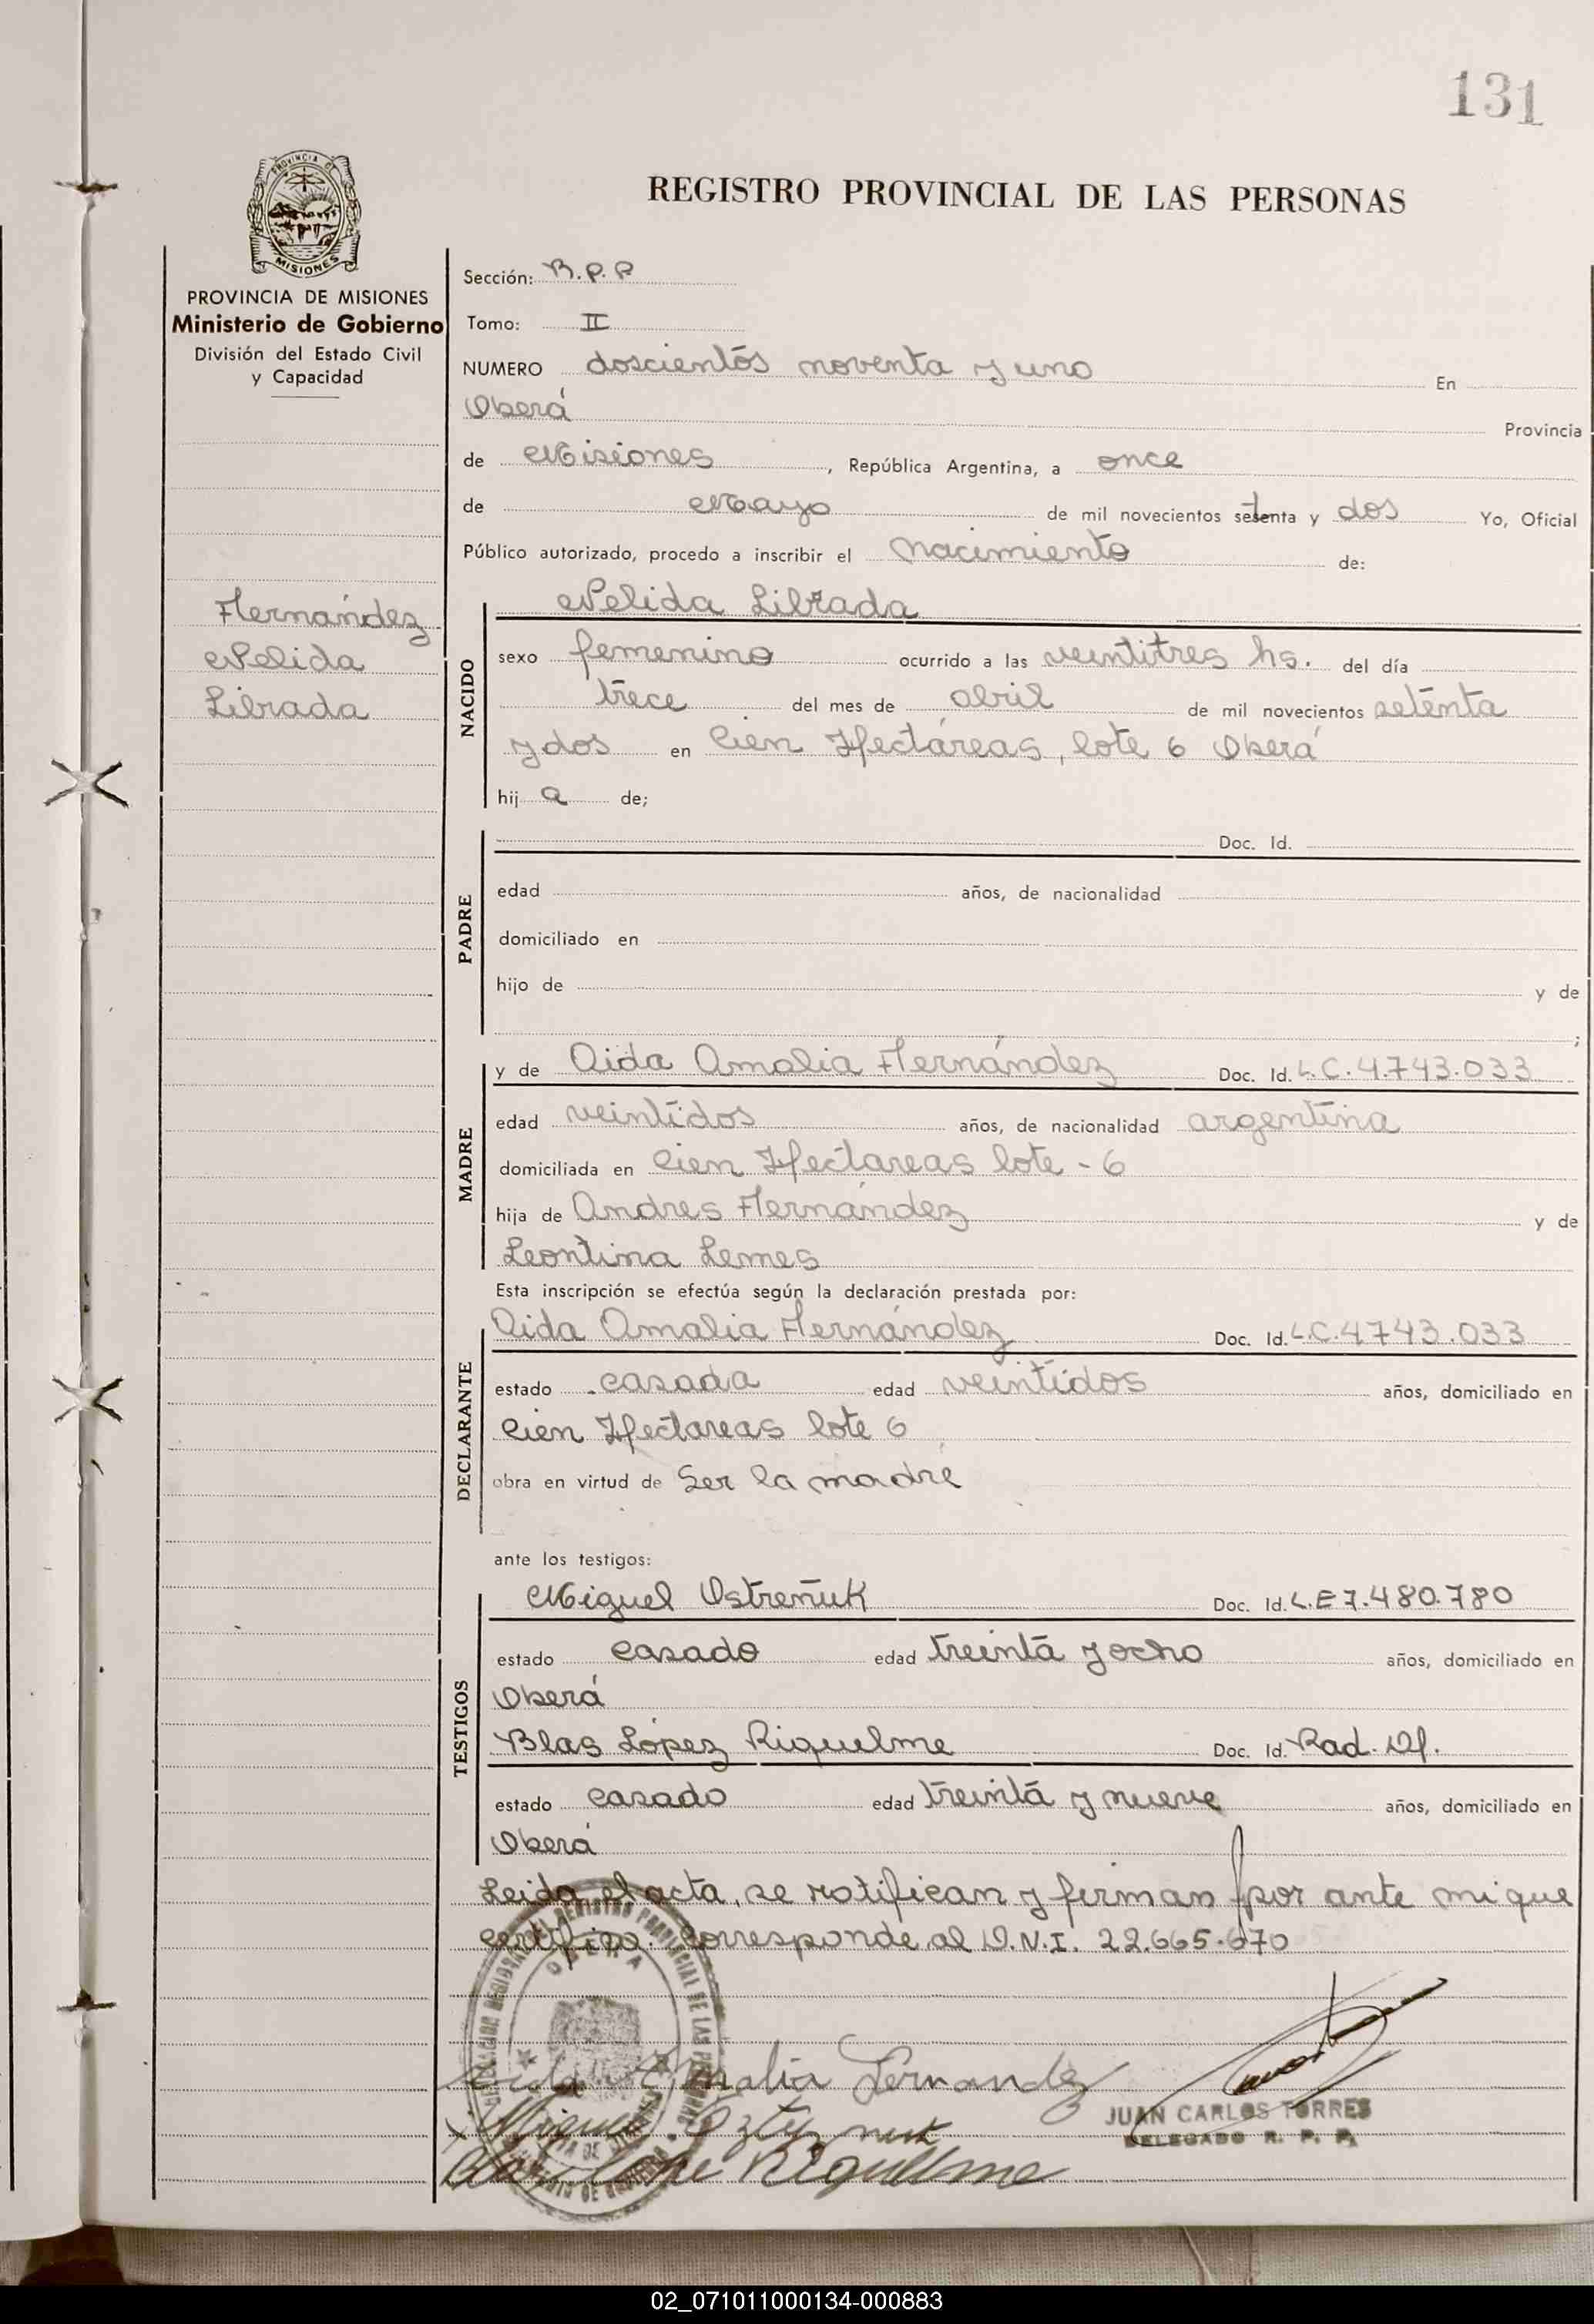 131
PROVINCIA DE
MISIONES
REGISTRO PROVINCIAL DE LAS PERSONAS
PROVINCIA DE MISIONES
Ministerio de Gobierno
División del Estado Civil
y Capacidad
Hernández
Nelida
Librada
Sección: R.P.P
Tomo: II
NUMERO doscientos noventa y uno En
Oberá Provincia
de Misiones, República Argentina, a once
de Mayo de mil novecientos setenta y dos Yo, Oficial
Público autorizado, procedo a inscribir el nacimiento de:
NACIDO
Nelida Librada
sexo femenino ocurrido a las veintitres hs. del día
trece del mes de abril de mil novecientos setenta
y dos en Cien Hectáreas, lote 6 Oberá
hij a de;
PADRE
Doc. Id.
edad años, de nacionalidad
domiciliado en
hijo de y de
;
MADRE
y de Aida Amalia Hernández Doc. Id. L.C. 4.743.033
edad veintidos años, de nacionalidad argentina
domiciliada en Cien Hectareas lote - 6
hija de Andres Hernández y de
Leontina Lemes
Esta inscripción se efectúa según la declaración prestada por:
DECLARANTE
Aida Amalia Hernández Doc. Id. L.C. 4743.033
estado casada edad veintidos años, domiciliado en
Cien Hectareas lote 6
obra en virtud de Ser la madre
ante los testigos:
TESTIGOS
Miguel Ostreñuk Doc. Id. L.E 7.480.780
estado casado edad treinta y ocho años, domiciliado en
Oberá
Blas López Riquelme Doc. Id. Rad. Df.
estado casado edad treinta y nueve años, domiciliado en
Oberá
Leida el acta, se ratifican y firman por ante mi que
certifico: Corresponde al D.N.I. 22.665.670
OBERA
Aida Amalia Hernandez
JUAN CARLOS TORRES
DELEGADO R. P. P.
Miguel
Blas Riquelme
02_071011000134-000883